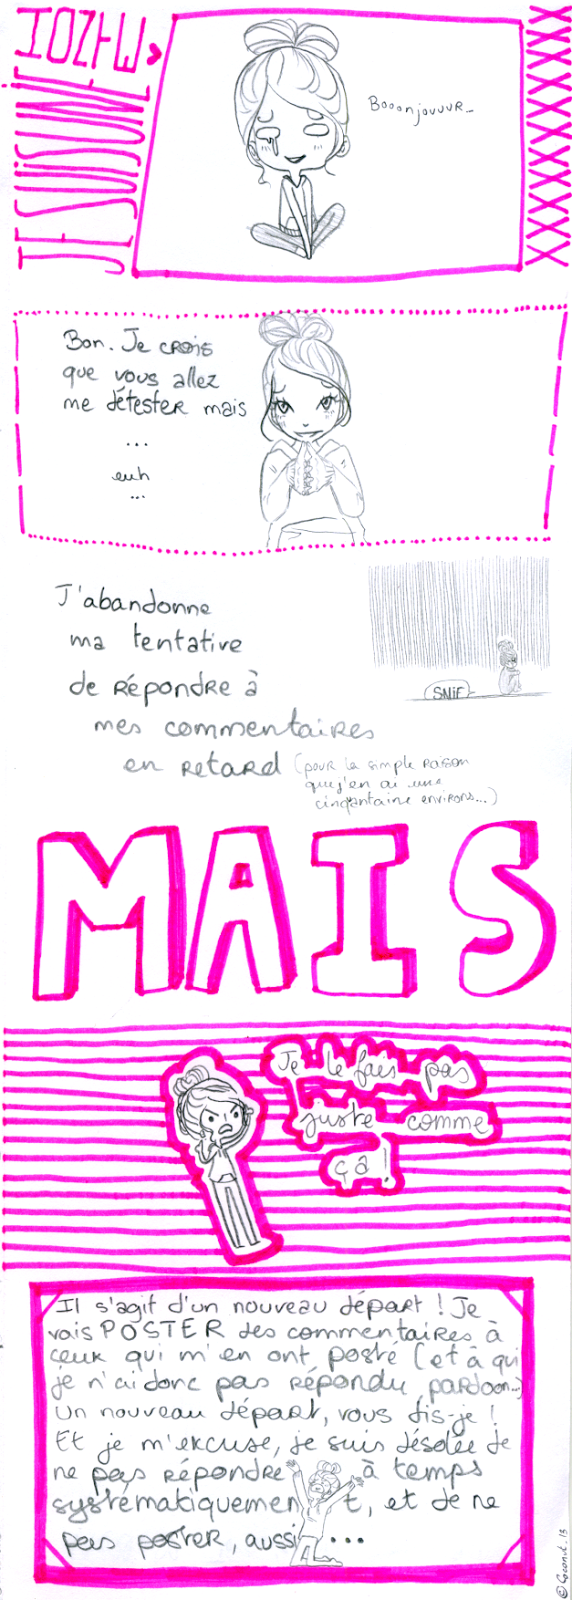 JE SUIS UNE
Booonjouuur_
Bon. Je crois
que vous allez
me détester mais
...
euh
...
J'abandonne
ma tentative
de répondre à
mes commentaires
en retard (pour la simple raison
que j'en ai une
cinqantaine environs...)
SNIF
MAIS
Je le fais pas
juste comme
ça !
Il s'agit d'un nouveau départ ! Je
vais POSTER des commentaires à
ceux qui m'en ont posté (et à qui
je n'ai donc pas répondu, pardoon...)
Un nouveau départ, vous dis-je !
Et je m'excuse, je suis désolée de
ne pas répondre à temps
systématiquement, et de ne
pas poster, aussi ...
© Coconut. 13